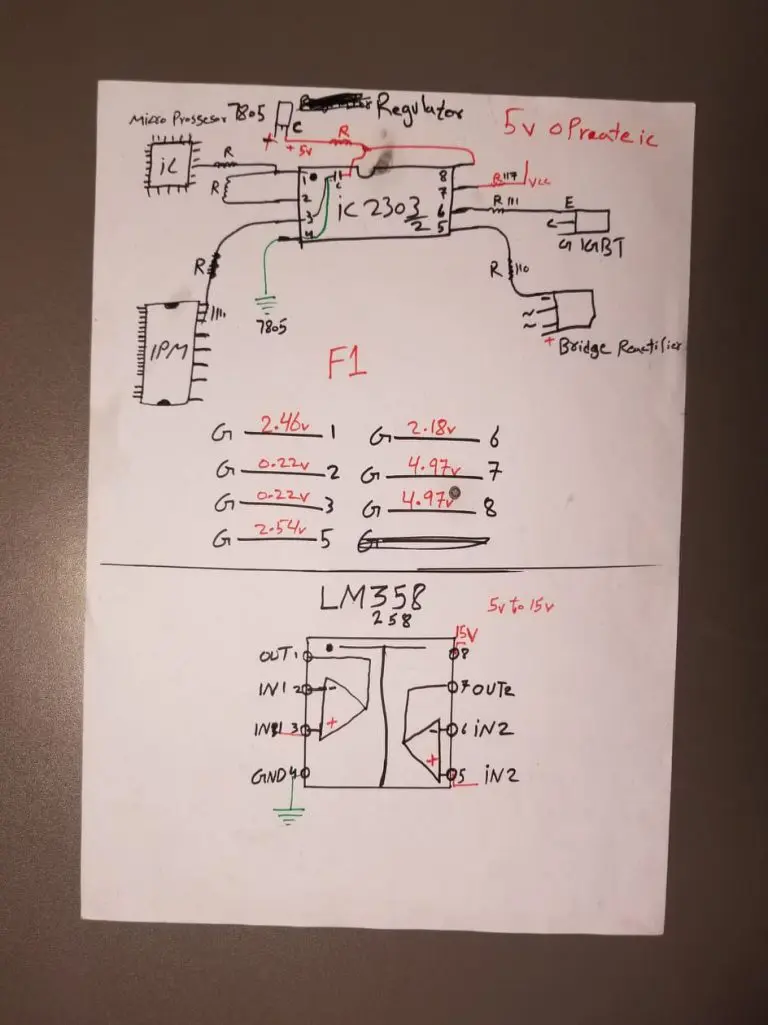 Micro Prossesor 7805 Regulator
C
R
5v oPraate ic
+ +5v
iC R
1 8
R117 VCC
R
7
2 iC 2303 R111 E
6
3 2 5 C
4 G IGBT
R R 110
111
~
~
7805
IPM + Bridge Rectifier
F1
G 2.46v 1 G 2.18v 6
G 0.22v 2 G 4.97v 7
G 0.22v 3 G 4.97v 8
G 2.54v 5 G
LM358
258 5v to 15v
15V
OUT1 8
IN1 2 - 7 OUT2
IN1 3 + - 6 iN2
GND4 + 5 iN2